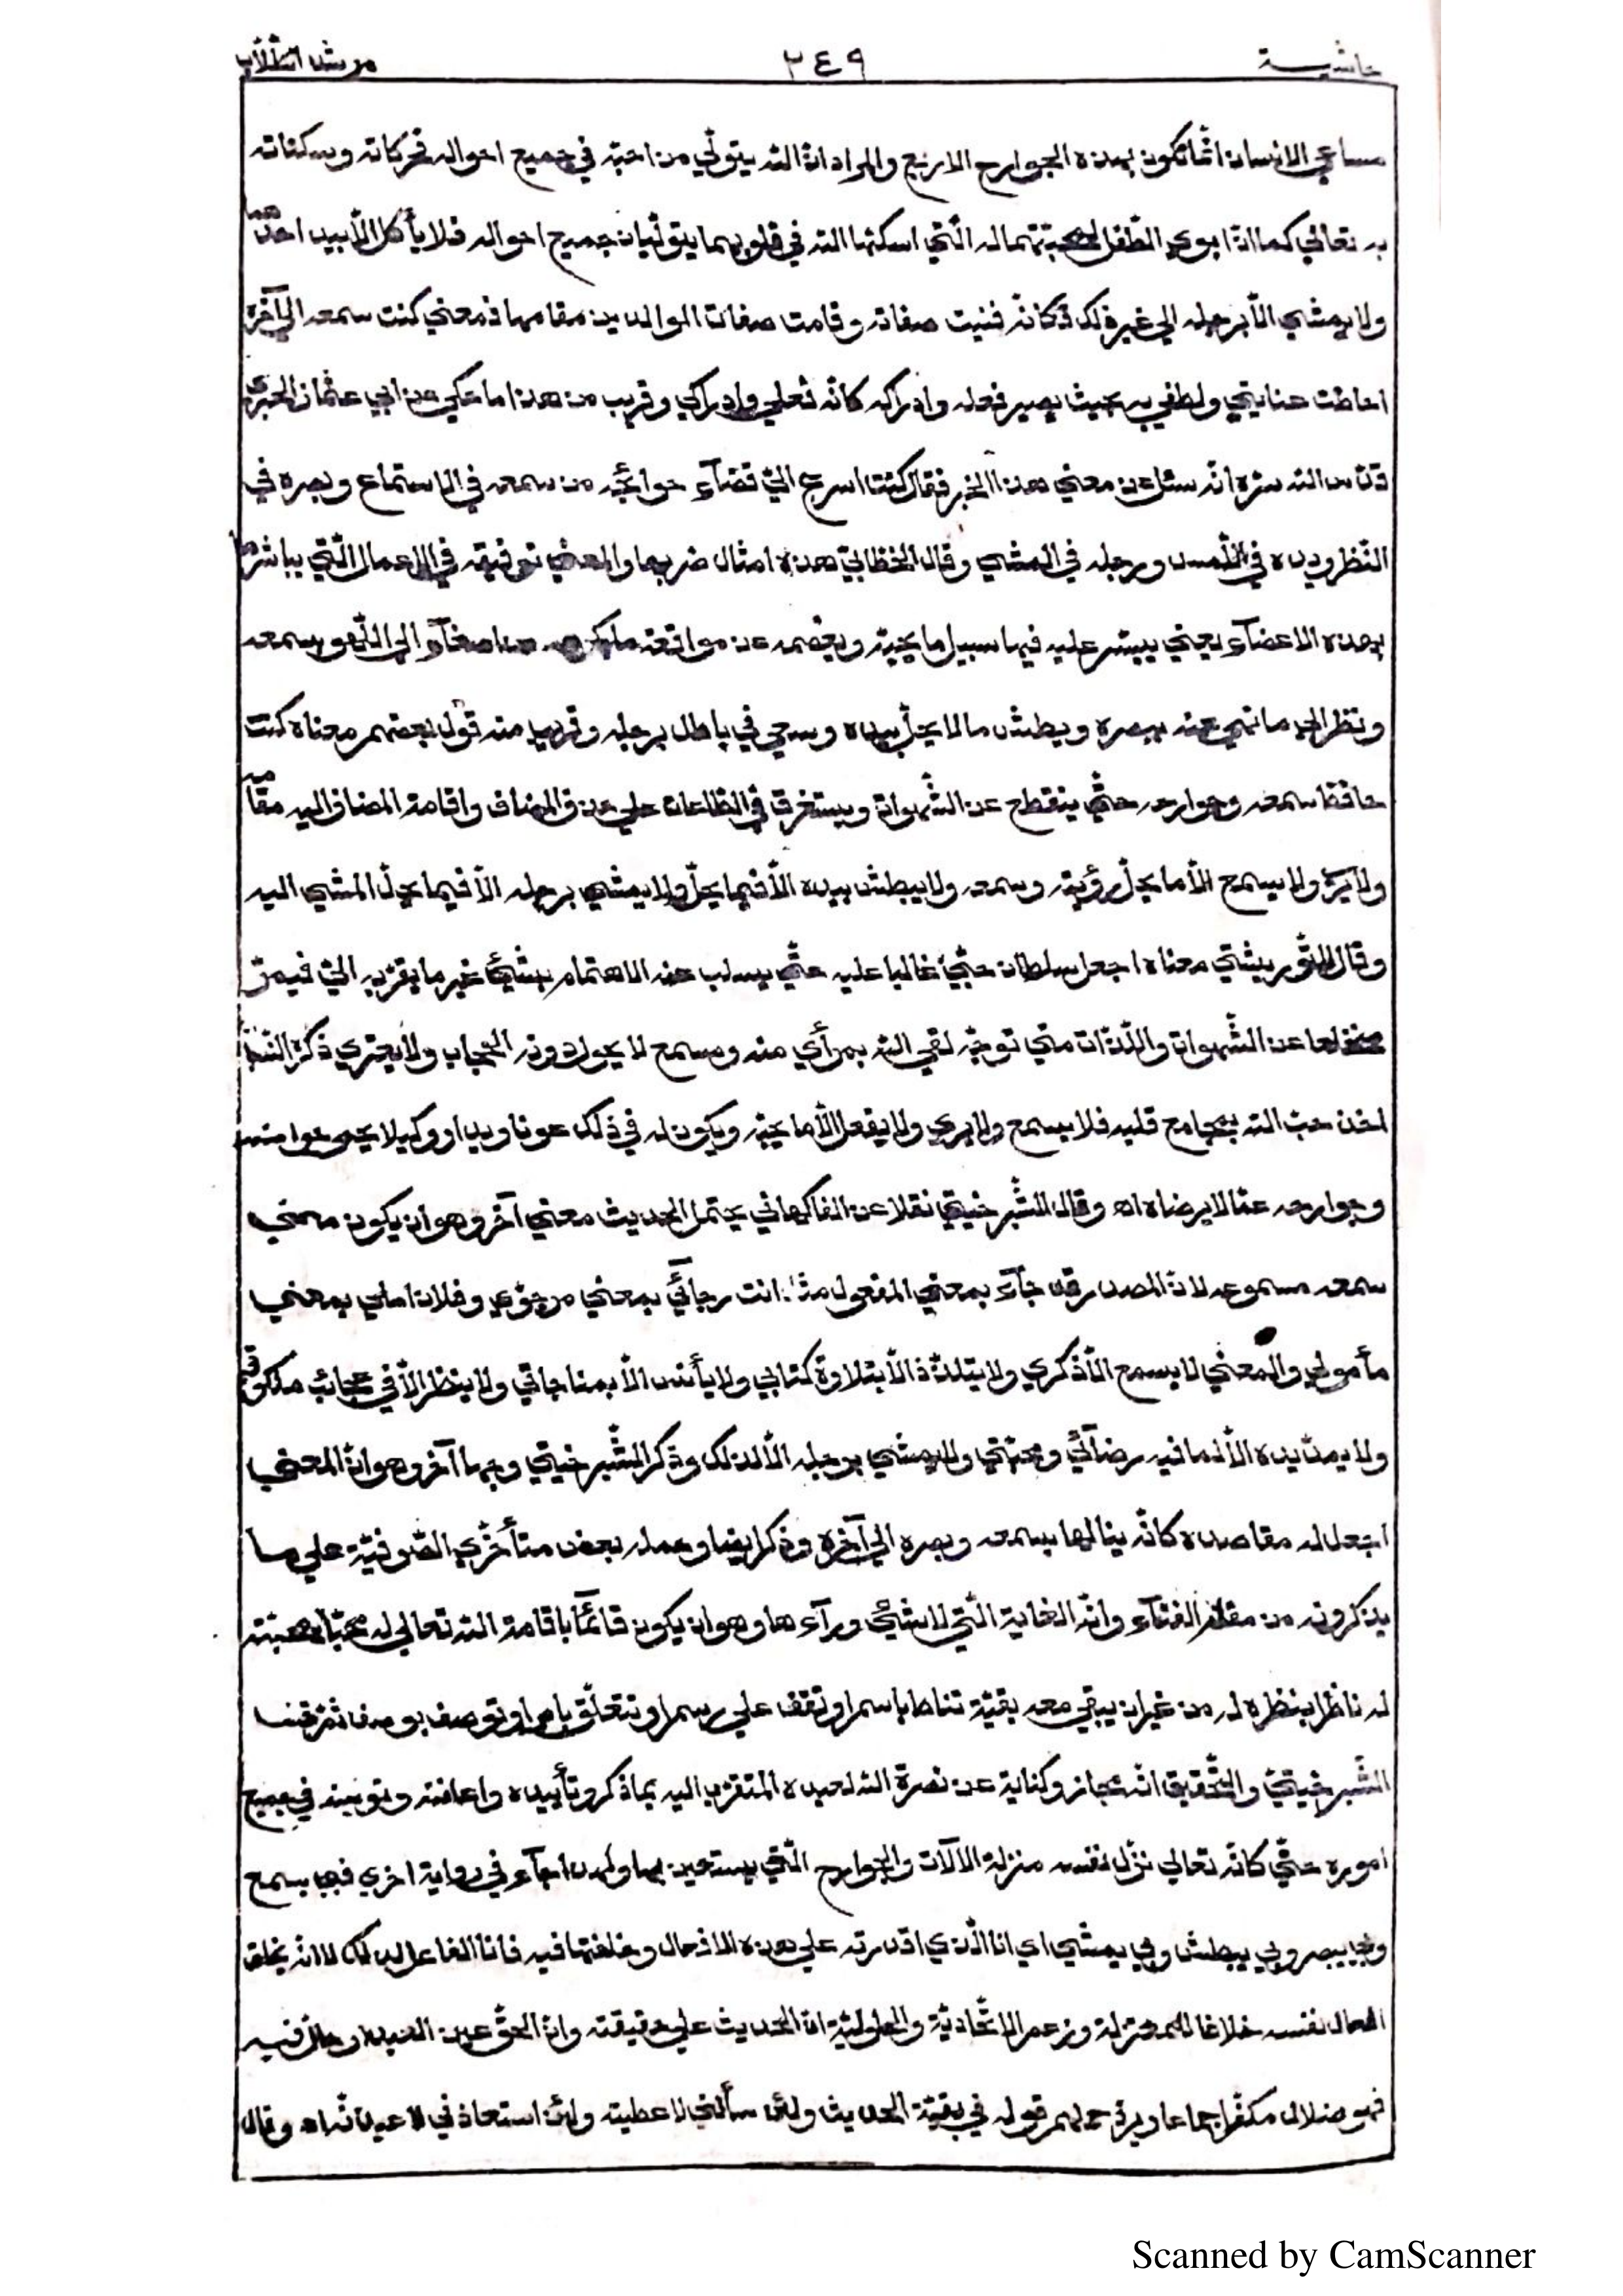 حاشية ٢٤٩ مرشد الطلاب
مساعي الانسان انما تكون بهذه الجوارح الاربع والمراد ان الله يتولّي من احبّه في جميع احواله فحركاته وسكناته
به تعالي كما انّ ابوي الطّفل لمحبّتهما له الّتي اسكنها الله في قلوبهما يتولّيان جميع احواله فلا يأكل الّا بيد احدهما
ولا يمشي الّا برجله الي غير ذلك فكانّه فنيت صفاته وقامت صفات الوالدين مقامها فمعني كنت سمعه الي آخره
احاطت عنايتي ولطفي به بحيث يصير فعله وادراكه كانّه فعلي وادراكي وقريب من هذا ما حكي عن ابي عثمان الحيري
قدّس الله سرّه انّه سئل عن معني هذا الخبر فقال كنت اسرع الي قضآء حوائجه من سمعه في الاستماع وبصره في
النّظر ويده في اللّمس ورجله في المشي وقال الخطّابيّ هذه امثال ضربها والمعني توفيقه في الاعمال الّتي يباشرها
بهذه الاعضآء يعني ييسّر عليه فيها سبيل ما يحبّه ويعصمه عن مواقعة ما يكره من اصغآء الي اللّهو بسمعه
ونظر الي ما نهي عنه ببصره وبطش ما لا يحلّ بيده وسعي في باطل برجله وقريب منه قول بعضهم معناه كنت
حافظ سمعه وجوارحه حتّي ينقطع عن الشّهوات ويستغرق في الطّاعات علي حذف المضاف واقامة المضاف اليه مقامه
ولا يري ولا يسمع الّا ما يحلّ رؤيته وسمعه ولا يبطش بيده الّا فيما يحلّ ولا يمشي برجله الّا فيما يحلّ المشي اليه
وقال التّوربشتي معناه اجعل سلطان حبّي غالبا عليه حتّي يسلب عنه الاهتمام بشيئ غير ما يقرّبه اليّ فيصير
منخلعا عن الشّهوات واللّذّات متي توجّه لقي الله بمرأي منه ومسمع لا يحول دونه الحجاب ولا يعتري ذكره النّسيان
اخذ حبّ الله بمجامع قلبه فلا يسمع ولا يري ولا يفعل الّا ما يحبّه ويكون له في ذلك عونا ويدا ووكيلا يحمي حواسّه
وجوارحه عمّا لا يرضاه اه وقال الشّبرخيتي نقلا عن الفاكهاني يحتمل الحديث معني آخر وهو ان يكون معني
سمعه مسموعه لانّ المصدر قد جآء بمعني المفعول مثل انت رجآئي بمعني مرجوّي وفلان املي بمعني
مأمولي والمعني لا يسمع الّا ذكري ولا يتلذّذ الّا بتلاوة كتابي ولا يأنس الّا بمناجاتي ولا ينظر الّا في عجائب ملكوتي
ولا يمدّ يده الّا لما فيه رضآئي ومحبّتي ولا يمشي برجله الّا لذلك وذكر الشّبرخيتي وجها آخر وهو انّ المعني
اجعل له مقاصده كانّه ينالها بسمعه وبصره الي آخره وذكر ايضا وحمله بعض متأخّري الصّوفيّة علي ما
يذكرونه من مقام الفنآء وانّه الغاية الّتي لا شيئ ورآءها وهو ان يكون قائمًا باقامة الله تعالي له محبّا بمحبّته
له ناظرا بنظره له من غير ان يبقي معه بقيّة تناط باسم او تقف علي رسم او تتعلّق بامر او توصف بوصف ثمّ قال
الشّبرخيتي والتّحقيق انّه مجاز وكناية عن نصرة الله لعبده المتقرّب اليه بما ذكر وتأييده واعانته وتولّيه في جميع
اموره حتّي كانّه تعالي نزّل نفسه منزلة الآلات والجوارح الّتي يستعين بها ولهذا جآء في رواية اخري فبي يسمع
وبي يبصر وبي يبطش وبي يمشي اي انا الّذي اقدرته علي هذه الافعال وخلقتها فيه فانا الفاعل لذلك لا انّه يخلق
افعال نفسه خلافا للمعتزلة وزعم الاتّحاديّة والحلوليّة انّ الحديث علي حقيقته وانّ الحقّ عين العبد او حالّ فيه
فهو ضلال مكفّر اجماعا ويردّ عليهم قوله في بقيّة الحديث ولئن سألني لاعطيته ولئن استعاذني لاعيذنّه اه وقال
Scanned by CamScanner